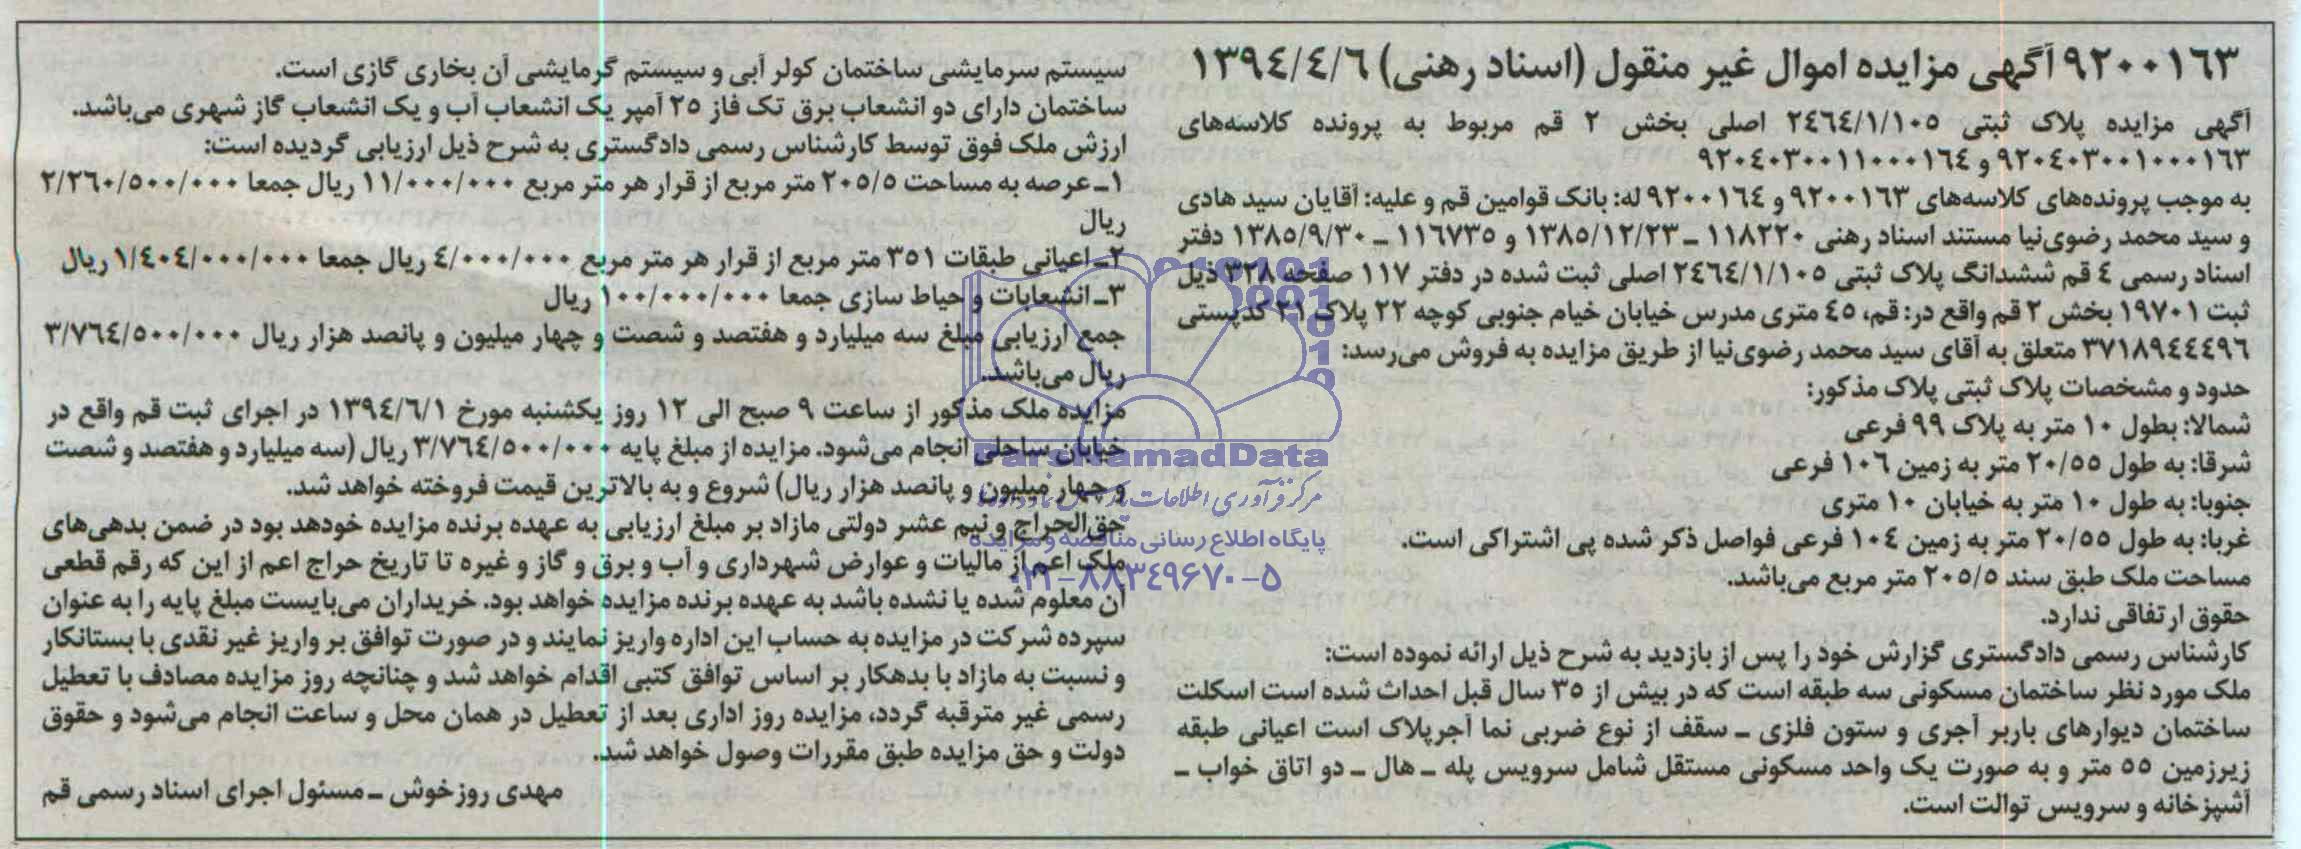 ۹۲۰۰۱۶۳ آگهی مزایده اموال غیر منقول (اسناد رهنی) ۱۳۹٤/٤/۶
آگهی مزایده پلاک ثبتی ۲٤۶٤/۱/۱۰۵ اصلی بخش ۲ قم مربوط به پرونده کلاسه‌های
۹۲۰٤۰۳۰۰۱۰۰۰۱۶۳ و ۹۲۰٤۰۳۰۰۱۱۰۰۰۱۶٤
به موجب پرونده‌های کلاسه‌های ۹۲۰۰۱۶۳ و ۹۲۰۰۱۶٤ له: بانک قوامین قم و علیه: آقایان سید هادی
و سید محمد رضوی‌نیا مستند اسناد رهنی ۱۱۸۲۲۰ ـ ۱۳۸۵/۱۲/۲۳ و ۱۱۶۷۳۵ ـ ۱۳۸۵/۹/۳۰ دفتر
اسناد رسمی ٤ قم ششدانگ پلاک ثبتی ۲٤۶٤/۱/۱۰۵ اصلی ثبت شده در دفتر ۱۱۷ صفحه ۳۲۸ ذیل
ثبت ۱۹۷۰۱ بخش ۲ قم واقع در: قم، ٤۵ متری مدرس خیابان خیام جنوبی کوچه ۲۲ پلاک ۲۱ کدپستی
۳۷۱۸۹٤٤٤۹۶ متعلق به آقای سید محمد رضوی‌نیا از طریق مزایده به فروش می‌رسد:
حدود و مشخصات پلاک ثبتی پلاک مذکور:
شمالا: بطول ۱۰ متر به پلاک ۹۹ فرعی
شرقا: به طول ۲۰/۵۵ متر به زمین ۱۰۶ فرعی
جنوبا: به طول ۱۰ متر به خیابان ۱۰ متری
غربا: به طول ۲۰/۵۵ متر به زمین ۱۰٤ فرعی فواصل ذکر شده پی اشتراکی است.
مساحت ملک طبق سند ۲۰۵/۵ متر مربع می‌باشد.
حقوق ارتفاقی ندارد.
کارشناس رسمی دادگستری گزارش خود را پس از بازدید به شرح ذیل ارائه نموده است:
ملک مورد نظر ساختمان مسکونی سه طبقه است که در بیش از ۳۵ سال قبل احداث شده است اسکلت
ساختمان دیوارهای باربر آجری و ستون فلزی ـ سقف از نوع ضربی نما آجرپلاک است اعیانی طبقه
زیرزمین ۵۵ متر و به صورت یک واحد مسکونی مستقل شامل سرویس پله ـ هال ـ دو اتاق خواب ـ
آشپزخانه و سرویس توالت است.
سیستم سرمایشی ساختمان کولر آبی و سیستم گرمایشی آن بخاری گازی است.
ساختمان دارای دو انشعاب برق تک فاز ۲۵ آمپر یک انشعاب آب و یک انشعاب گاز شهری می‌باشد.
ارزش ملک فوق توسط کارشناس رسمی دادگستری به شرح ذیل ارزیابی گردیده است:
۱ـ عرصه به مساحت ۲۰۵/۵ متر مربع از قرار هر متر مربع ۱۱/۰۰۰/۰۰۰ ریال جمعا ۲/۲۶۰/۵۰۰/۰۰۰
ریال
۲ـ اعیانی طبقات ۳۵۱ متر مربع از قرار هر متر مربع ٤/۰۰۰/۰۰۰ ریال جمعا ۱/٤۰٤/۰۰۰/۰۰۰ ریال
۳ـ انشعابات و حیاط سازی جمعا ۱۰۰/۰۰۰/۰۰۰ ریال
جمع ارزیابی مبلغ سه میلیارد و هفتصد و شصت و چهار میلیون و پانصد هزار ریال ۳/۷۶٤/۵۰۰/۰۰۰
ریال می‌باشد.
مزایده ملک مذکور از ساعت ۹ صبح الی ۱۲ روز یکشنبه مورخ ۱۳۹٤/۶/۱ در اجرای ثبت قم واقع در
خیابان ساحلی انجام می‌شود. مزایده از مبلغ پایه ۳/۷۶٤/۵۰۰/۰۰۰ ریال (سه میلیارد و هفتصد و شصت
و چهار میلیون و پانصد هزار ریال) شروع و به بالاترین قیمت فروخته خواهد شد.
حق‌الحراج و نیم عشر دولتی مازاد بر مبلغ ارزیابی به عهده برنده مزایده خودهد بود در ضمن بدهی‌های
ملک اعم از مالیات و عوارض شهرداری و آب و برق و گاز و غیره تا تاریخ حراج اعم از این که رقم قطعی
آن معلوم شده یا نشده باشد به عهده برنده مزایده خواهد بود. خریداران می‌بایست مبلغ پایه را به عنوان
سپرده شرکت در مزایده به حساب این اداره واریز نمایند و در صورت توافق بر واریز غیر نقدی با بستانکار
و نسبت به مازاد با بدهکار بر اساس توافق کتبی اقدام خواهد شد و چنانچه روز مزایده مصادف با تعطیل
رسمی غیر مترقبه گردد، مزایده روز اداری بعد از تعطیل در همان محل و ساعت انجام می‌شود و حقوق
دولت و حق مزایده طبق مقررات وصول خواهد شد.
مهدی روزخوش ـ مسئول اجرای اسناد رسمی قم
ParsNamadData
مرکز فرآوری اطلاعات پارس نماد داده‌ها
پایگاه اطلاع رسانی مناقصه و مزایده
۰۲۱-۸۸۳٤۹۶۷۰-۵